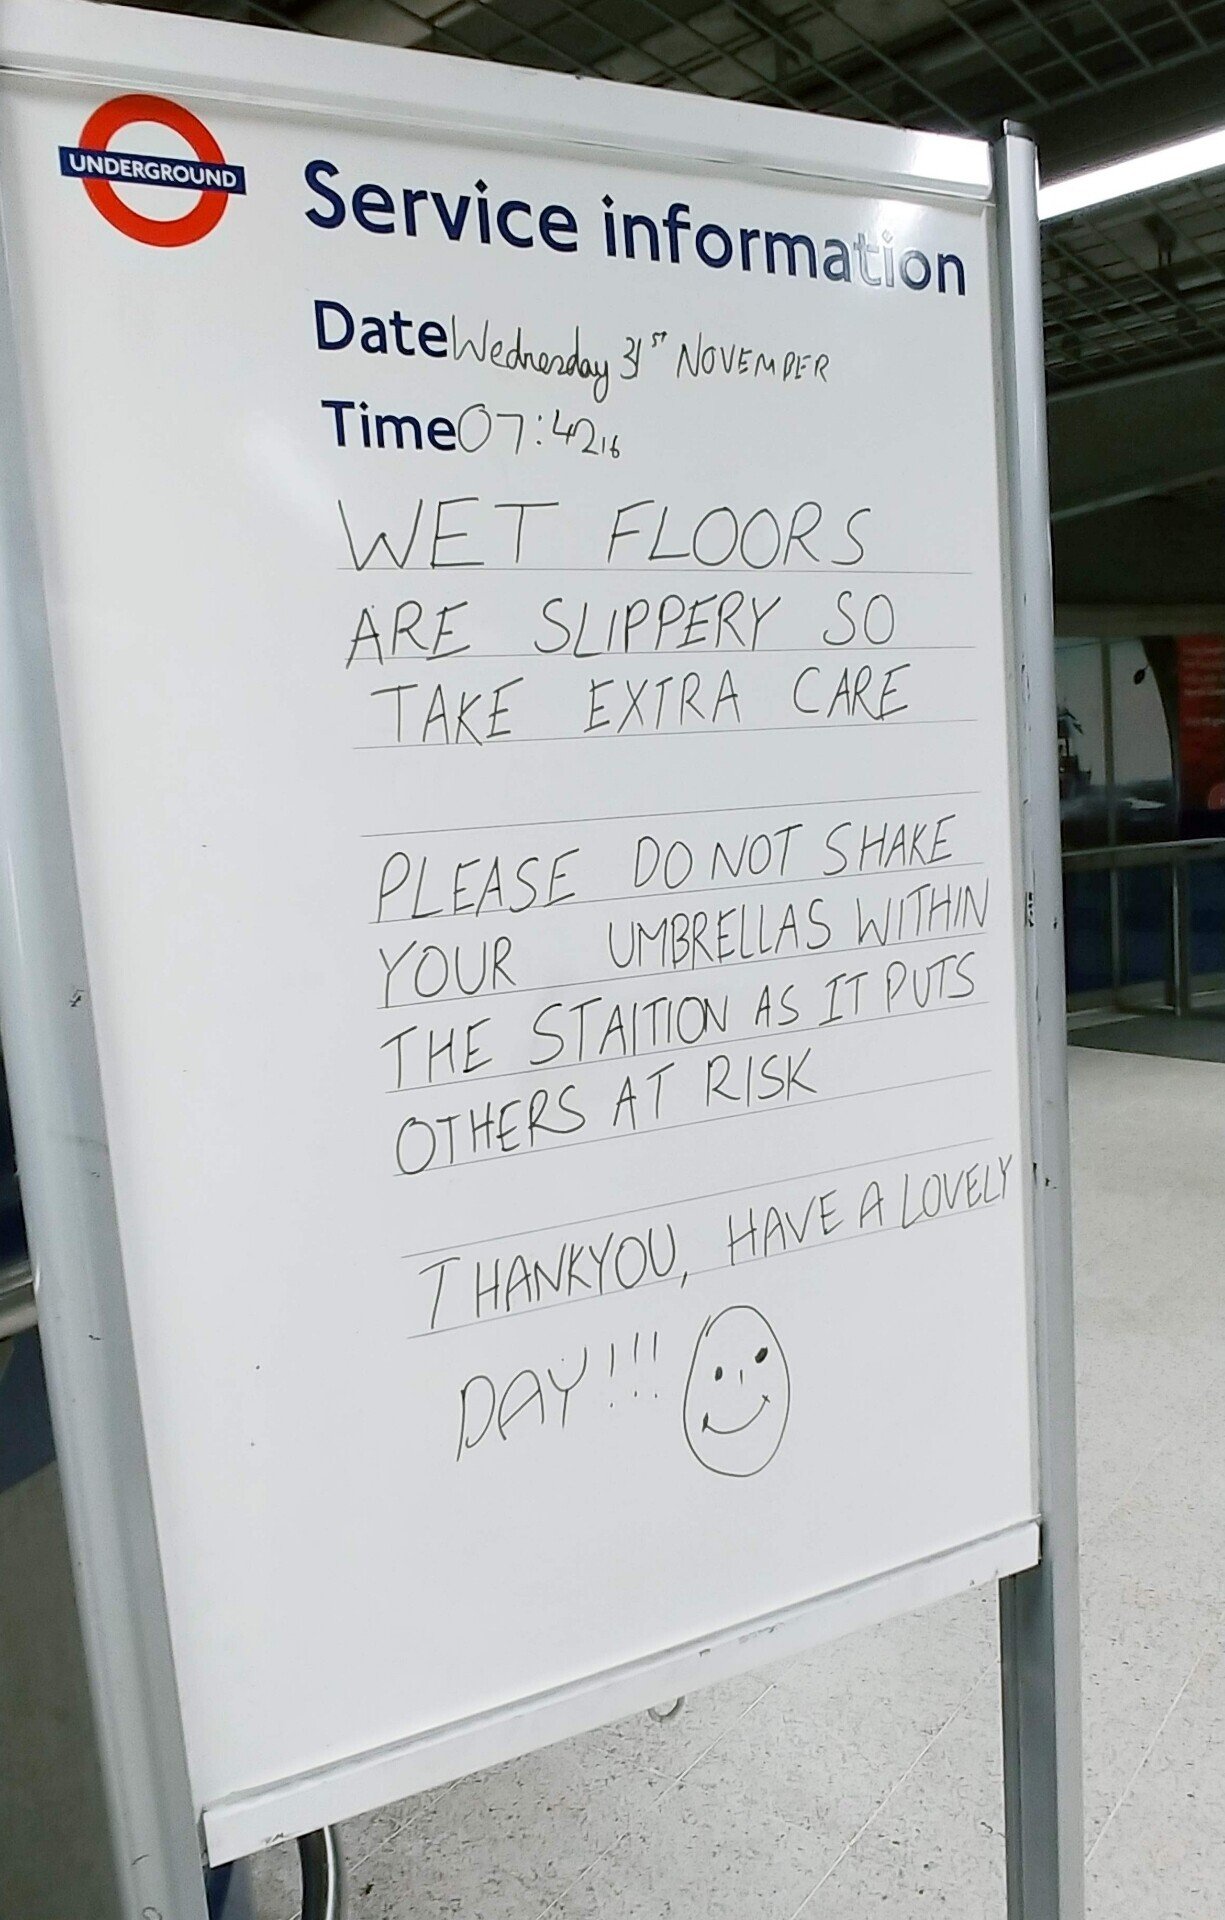 UNDERGROUND
Service information
Date Wednesday 31st NOVEMBER
Time 07:4216
WET FLOORS
ARE SLIPPERY SO
TAKE EXTRA CARE
PLEASE DO NOT SHAKE
YOUR UMBRELLAS WITHIN
THE STAITION AS IT PUTS
OTHERS AT RISK
THANKYOU, HAVE A LOVELY
DAY!!!